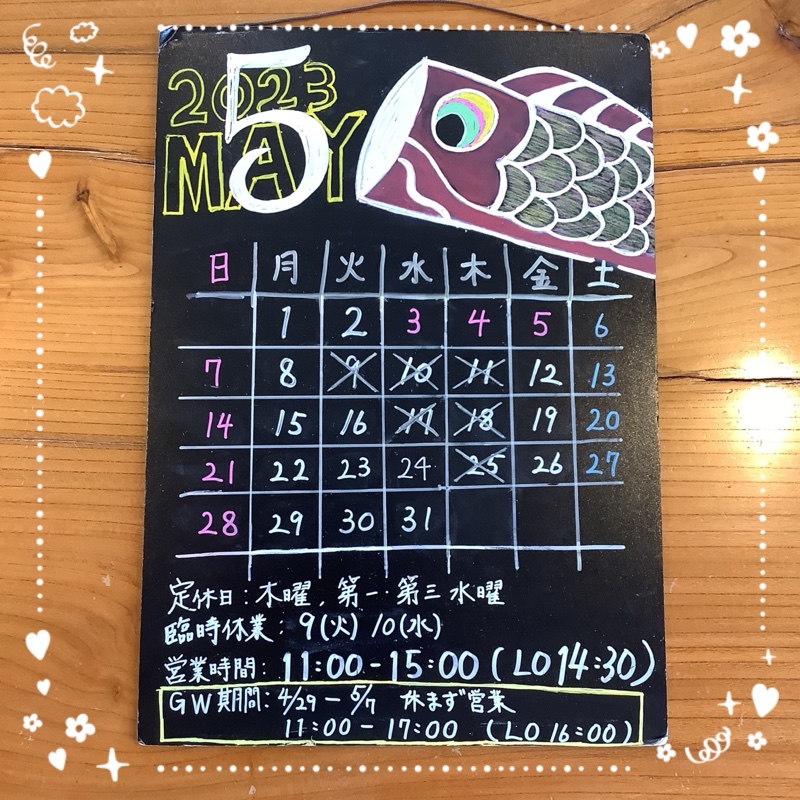 2023
5
MAY
日 月 火 水 木 金 土
1 2 3 4 5 6
7 8 9 10 11 12 13
14 15 16 17 18 19 20
21 22 23 24 25 26 27
28 29 30 31
定休日:木曜、第一・第三水曜
臨時休業:9(火) 10(水)
営業時間:11:00-15:00(LO14:30)
GW期間:4/29-5/7 休まず営業
11:00-17:00 (LO16:00)